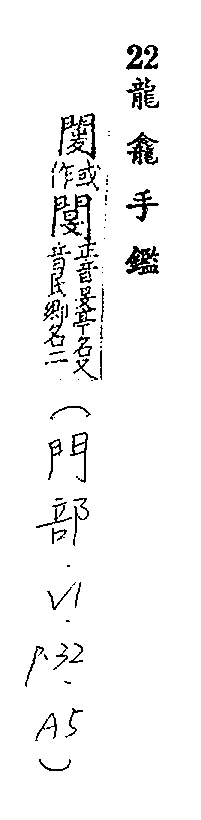 22龍龕手鑑
或作閺正音旻亭名又
音民鄉名二
（門部．VI．P.32．A5）